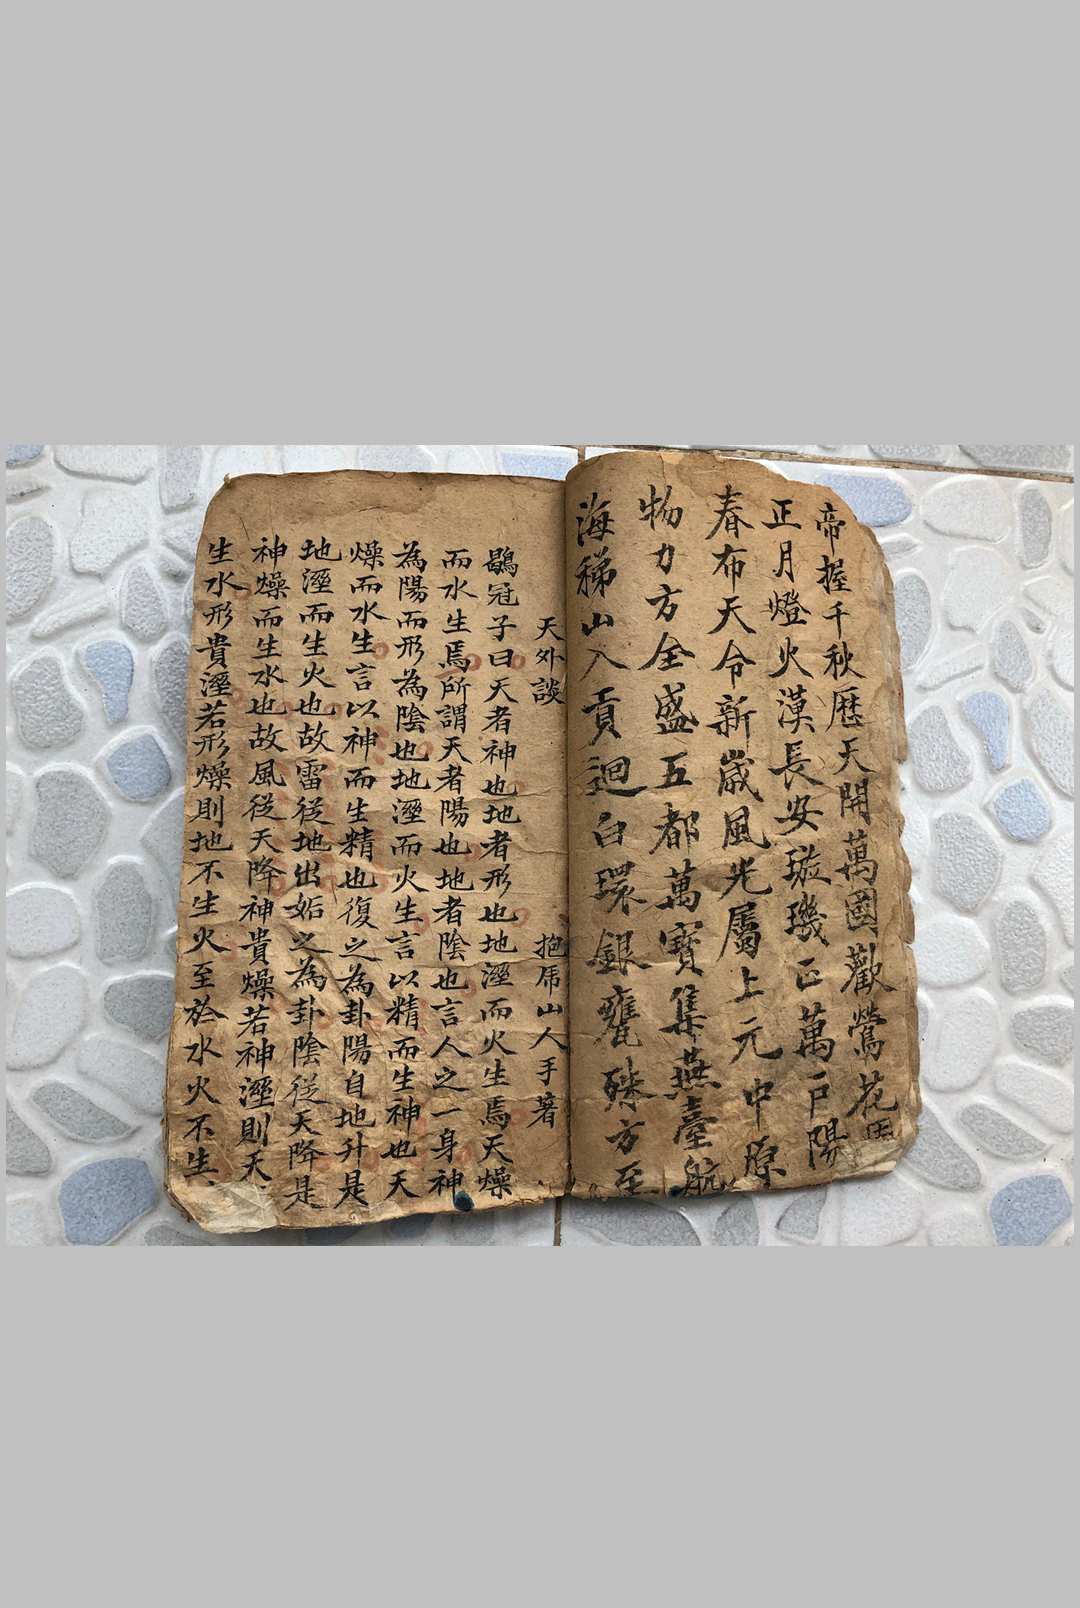 帝握千秋曆天開萬國歡鶯花
正月燈火漢長安璇璣正萬戶陽
春布天令新歲風光屬上元中原
物力方全盛五都萬寶集燕臺航
海稊山入貢迴白環銀甕殊方至
天外談 抱席山人手著
鶡冠子曰天者神也地者形也地溼而火生焉天燥
而水生焉所謂天者陽也地者陰也言人之一身神
為陽而形為陰也地溼而火生言以精而生神也天
燥而水生言以神而生精也復之為卦陽自地升是
地溼而生火也故雷從地出姤之為卦陰從天降是
神燥而生水也故風從天降神貴燥若神溼則天
生水形貴溼若形燥則地不生火至於水火不生